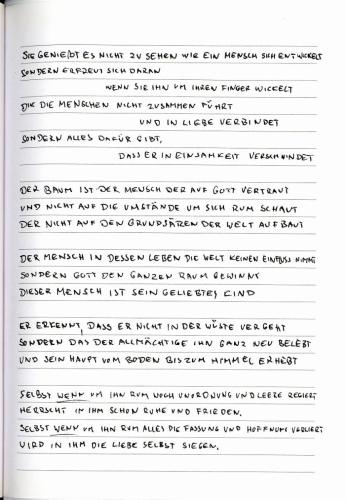 SIE GENIEßT ES NICHT ZU SEHEN WIE EIN MENSCH SICH ENTWICKELT
SONDERN ERFREUT SICH DARAN
WENN SIE IHN UM IHREN FINGER WICKELT
DIE DIE MENSCHEN NICHT ZUSAMMEN FÜHRT
UND IN LIEBE VERBINDET
SONDERN ALLES DAFÜR GIBT,
DASS ER IN EINSAMKEIT VERSCHWINDET
DER BAUM IST DER MENSCH DER AUF GOTT VERTRAUT
UND NICHT AUF DIE UMSTÄNDE UM SICH RUM SCHAUT
DER NICHT AUF DEN GRUNDSÄTZEN DER WELT AUFBAUT
DER MENSCH IN DESSEN LEBEN DIE WELT KEINEN EINFLUSS NIMMT
SONDERN GOTT DEN GANZEN RAUM GEWINNT
DIESER MENSCH IST SEIN GELIEBTES KIND
ER ERKENNT, DASS ER NICHT IN DER WÜSTE VERGEHT
SONDERN DAS DER ALLMÄCHTIGE IHN GANZ NEU BELEBT
UND SEIN HAUPT VOM BODEN BIS ZUM HIMMEL ERHEBT
SELBST WENN UM IHN RUM NOCH UNORDNUNG UND LEERE REGIERT
HERRSCHT IN IHM SCHON RUHE UND FRIEDEN.
SELBST WENN UM IHN RUM ALLES DIE FASSUNG UND HOFFNUNG VERLIERT
WIRD IN IHM DIE LIEBE SELBST SIEGEN.